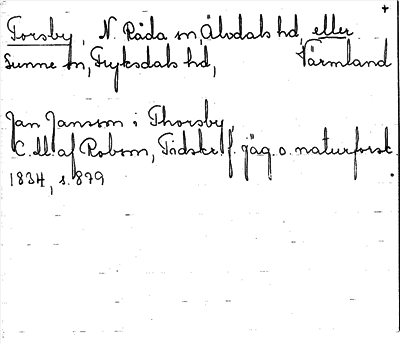 +
Torsby, N. Råda sn, Älvdals hd, eller
Sunne sn, Fryksdals hd, Värmland
Jan Jansson i Thorsby
C.M. af Robson, Tidskr. f. jäg. o. naturforsk.
1834, s. 879